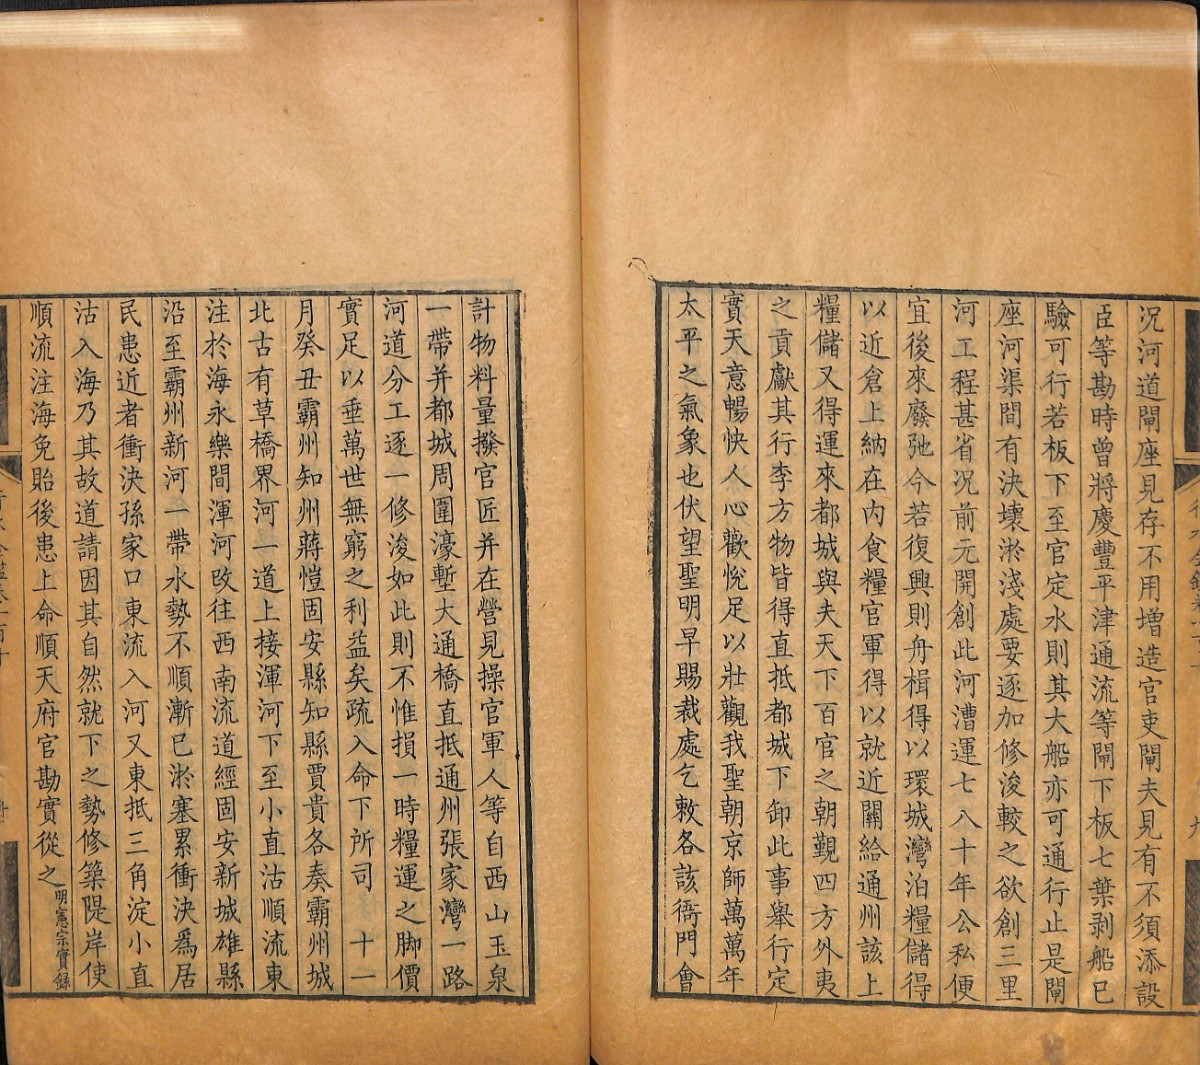 況河道閘座見存不用增造官吏閘夫見有不須添設
臣等勘時曾將慶豐平津通流等閘下板七葉剥船已
驗可行若板下至官定水則其大船亦可通行止是閘
座河渠間有決壞淤淺處要逐加修浚較之欲創三里
河工程甚省況前元開創此河漕運七八十年公私便
宜後來廢弛今若復興則舟楫得以環城灣泊糧儲得
以近倉上納在內食糧官軍得以就近關給通州該上
糧儲又得運來都城與夫天下百官之朝覲四方外夷
之貢獻其行李方物皆得直抵都城下卸此事舉行定
實天意暢快人心歡悅足以壯觀我聖朝京師萬萬年
太平之氣象也伏望聖明早賜裁處乞敕各該衙門會
計物料量撥官匠并在營見操官軍人等自西山玉泉
一帶并都城周圍濠塹大通橋直抵通州張家灣一路
河道分工逐一修浚如此則不惟損一時糧運之脚價
實足以垂萬世無窮之利益矣疏入命下所司　十一
月癸丑霸州知州蔣愷固安縣知縣賈貴各奏霸州城
北古有草橋界河一道上接渾河下至小直沽順流東
注於海永樂間渾河改往西南流道經固安新城雄縣
沿至霸州新河一帶水勢不順漸已淤塞累衝決爲居
民患近者衝決孫家口東流入河又東抵三角淀小直
沽入海乃其故道請因其自然就下之勢修築隄岸使
順流注海免貽後患上命順天府官勘實從之明憲宗實錄